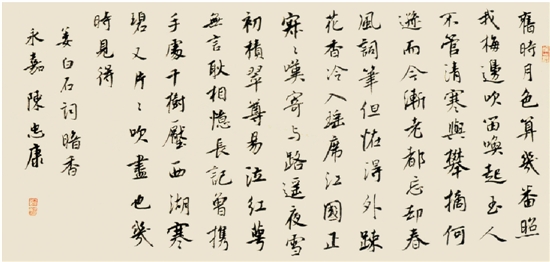 舊時月色算幾番照
我梅邊吹笛喚起玉人
不管清寒與攀摘何
遜而今漸老都忘却春
風詞筆但恠得外踈
花香冷入瑤席江國正
寂〻嘆寄与路遥夜雪
初積翠尊易泣紅萼
無言耿相憶長記曾携
手處千樹壓西湖寒
碧又片〻吹盡也幾
時見得
姜白石詞暗香
永嘉陳忠康